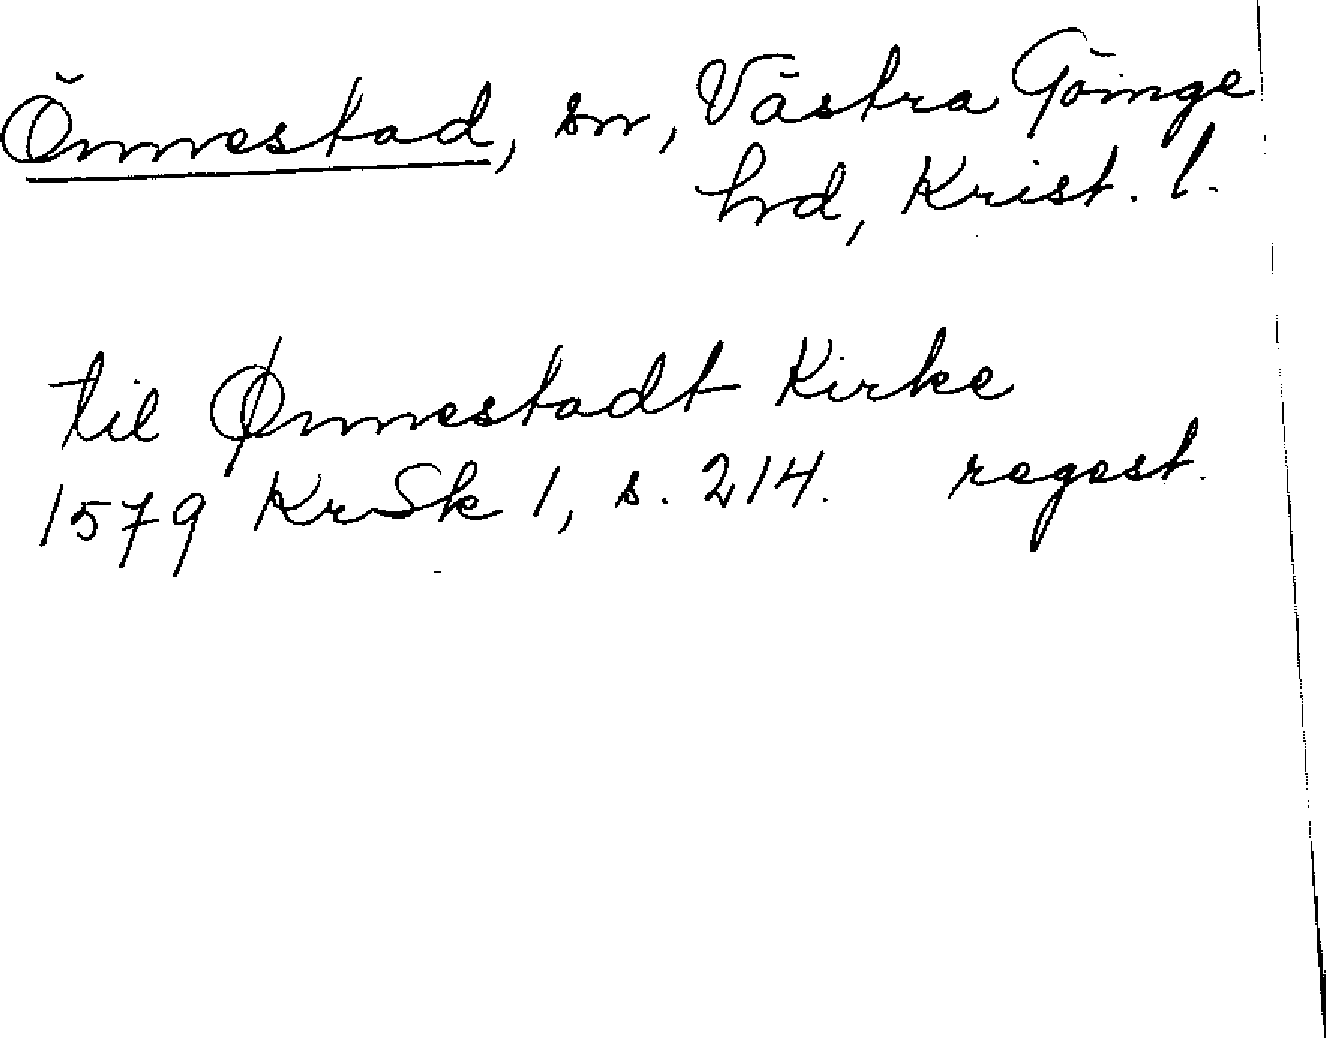 Önnestad, sn, Västra Göinge
hrd, Krist. l.
til Ønnestadt Kirke
1579 KrSk 1, s. 214. regest.